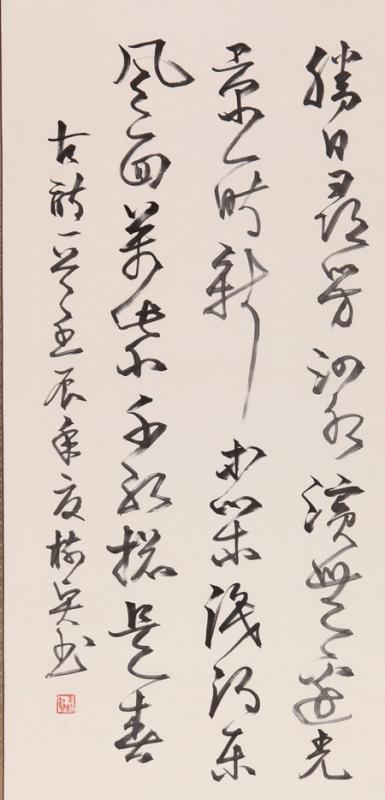 勝日尋芳泗水濱無邊光
景一時新等閑識得東
風面萬紫千紅總是春
古詩一首壬辰年夏書